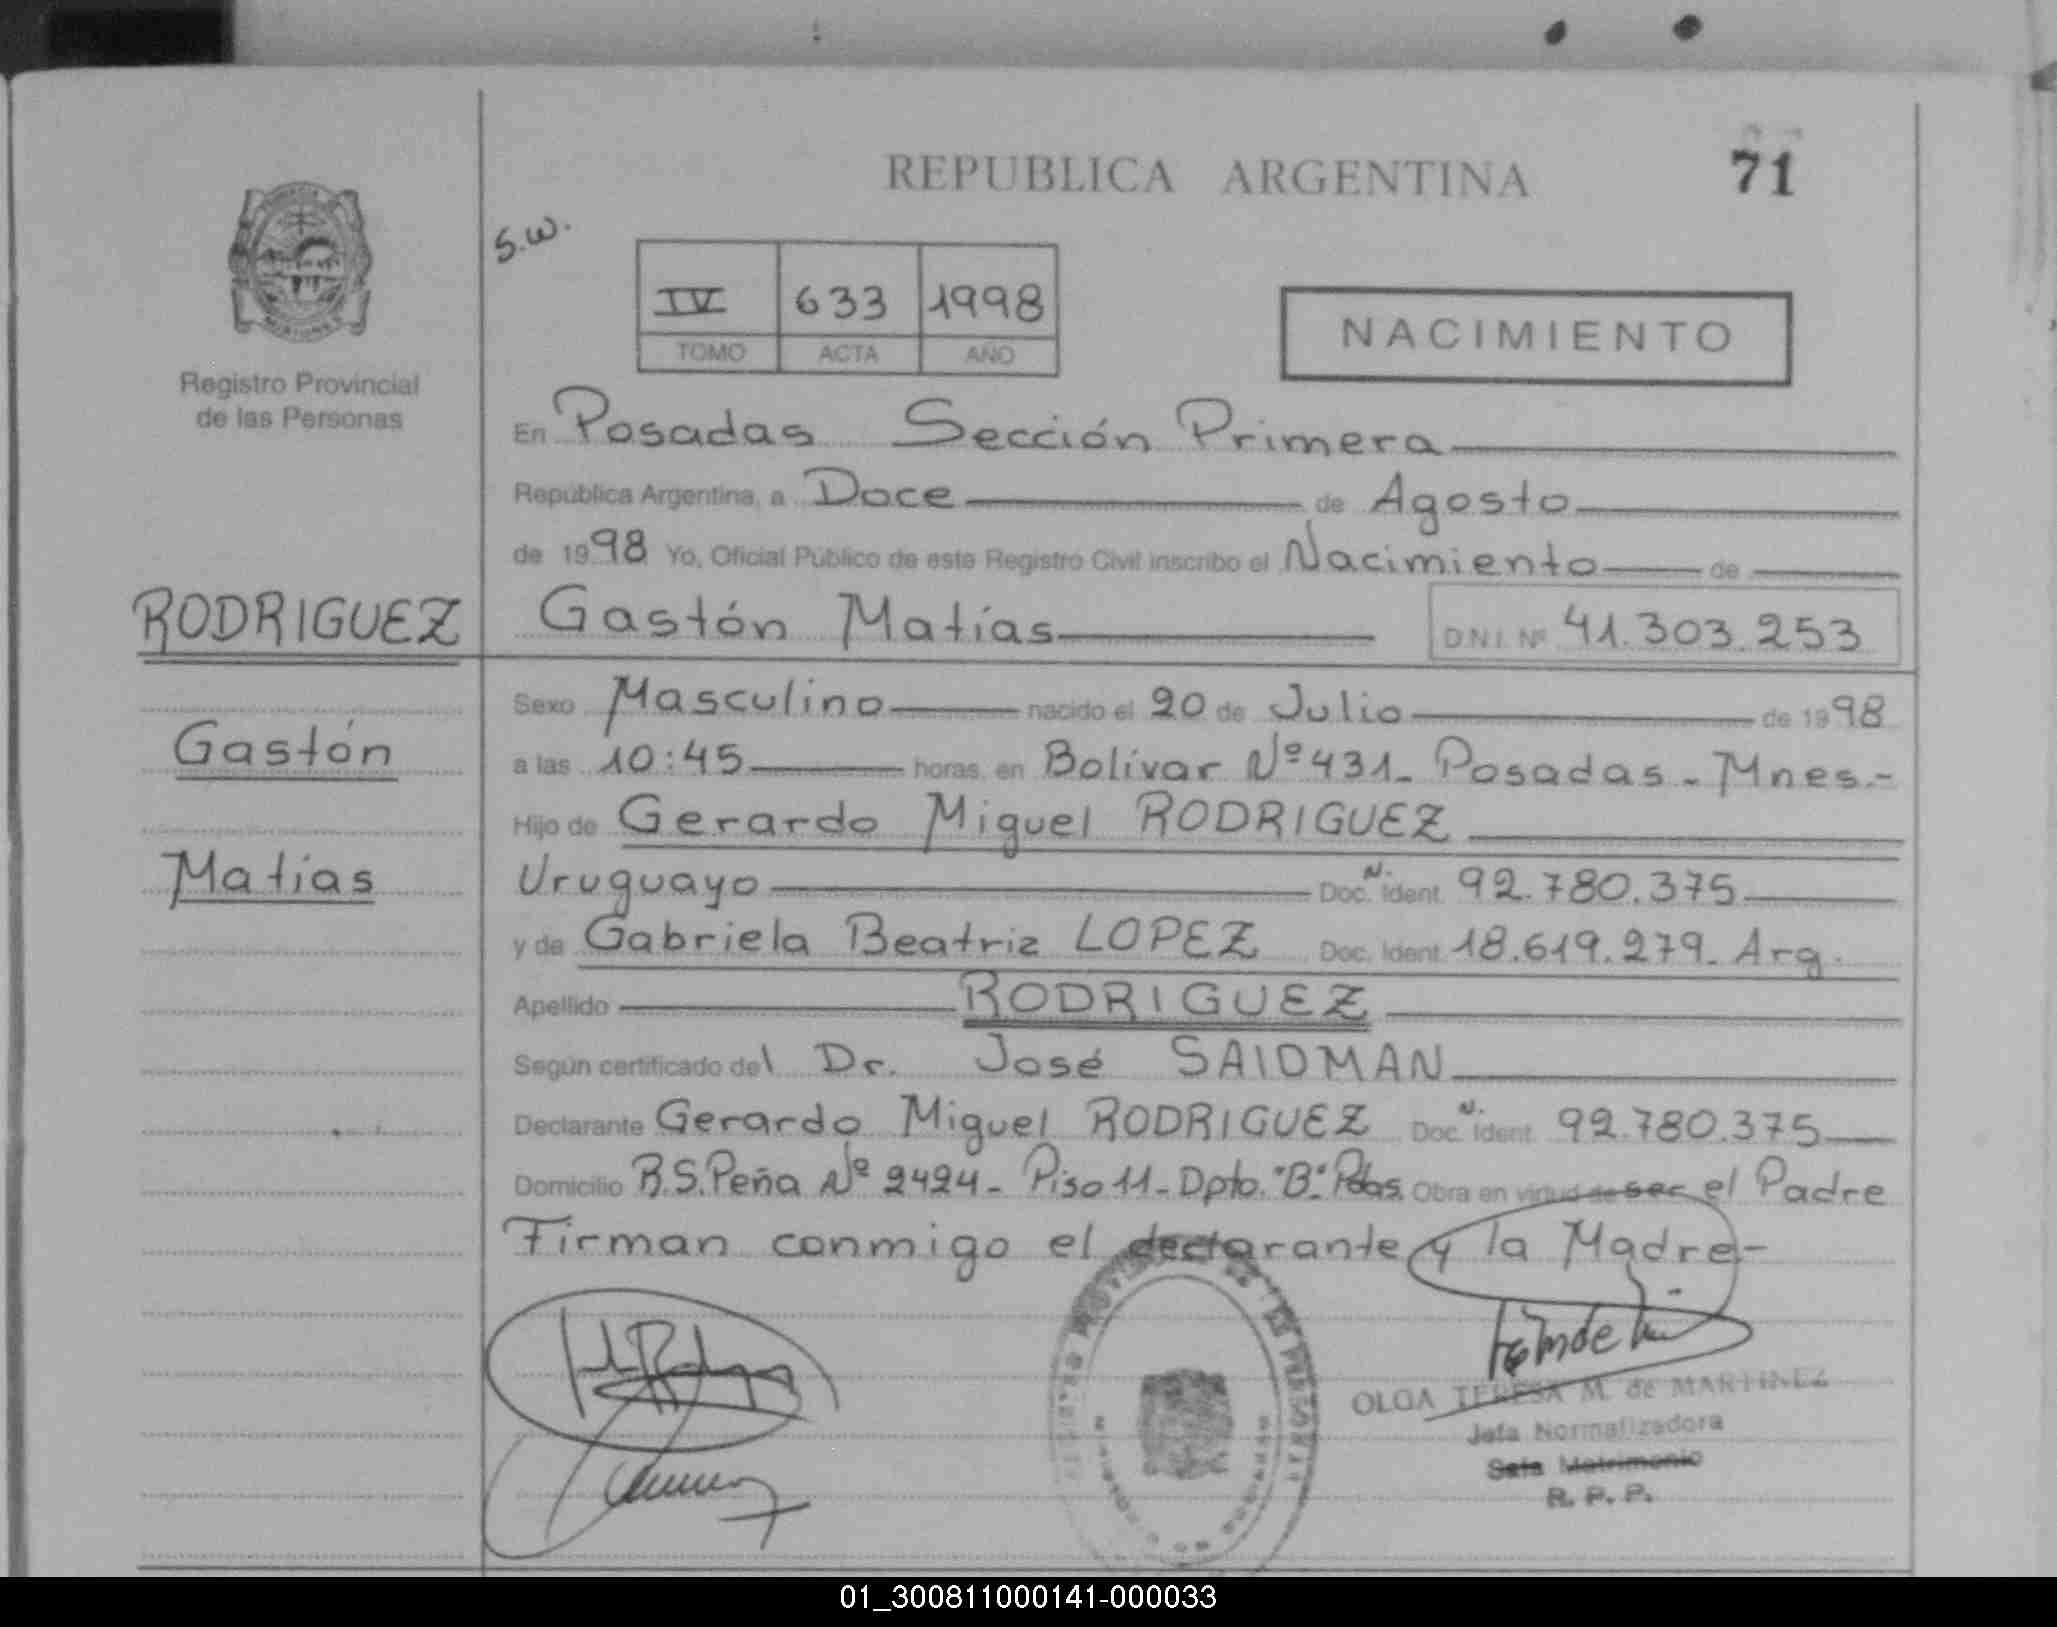 REPUBLICA ARGENTINA
71
S.W.
IV 633 1998
TOMO ACTA AÑO
NACIMIENTO
Registro Provincial
de las Personas
En Posadas Sección Primera
República Argentina, a Doce de Agosto
de 1998 Yo, Oficial Público de este Registro Civil inscribo el Nacimiento de
RODRIGUEZ
Gastón Matías D.N.I. Nº 41.303.253
Sexo Masculino nacido el 20 de Julio de 1998
Gastón
a las 10:45 horas, en Bolívar Nº 431- Posadas - Mnes.-
Hijo de Gerardo Miguel RODRIGUEZ
Matías
Uruguayo Doc. N. Ident. 92.780.375
y de Gabriela Beatriz LOPEZ Doc. Ident. 18.619.279. Arg.
Apellido RODRIGUEZ
Según certificado del Dr. José SAIDMAN
Declarante Gerardo Miguel RODRIGUEZ Doc. N. Ident. 92.780.375
Domicilio R.S.Peña Nº 2424- Piso 11- Dpto. "B"- Pdas. Obra en virtud de ser el Padre
Firman conmigo el declarante y la Madre-
OLGA TERESA M. de MARTINEZ
Jefa Normalizadora
Sala Matrimonio
R. P. P.
01_300811000141-000033